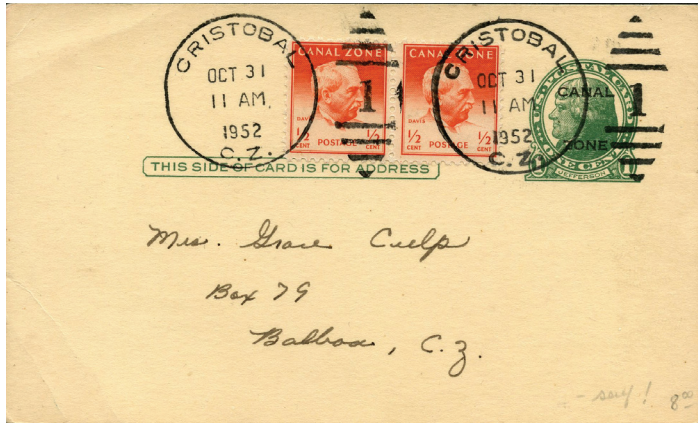 CRISTOBAL
OCT 31
11 AM
1952
C. Z.
CANAL ZONE
DAVIS
1/2 CENT POSTAGE 1/2 CENT
1
CANAL ZONE
DAVIS
1/2 CENT POSTAGE 1/2 CENT
CRISTOBAL
OCT 31
11 AM
1952
C. Z.
U.S. POSTAL CARD
CANAL
ZONE
ONE CENT
JEFFERSON
1
1
THIS SIDE OF CARD IS FOR ADDRESS
Mrs. Grace Culp
Box 79
Balboa, C.Z.
8.00